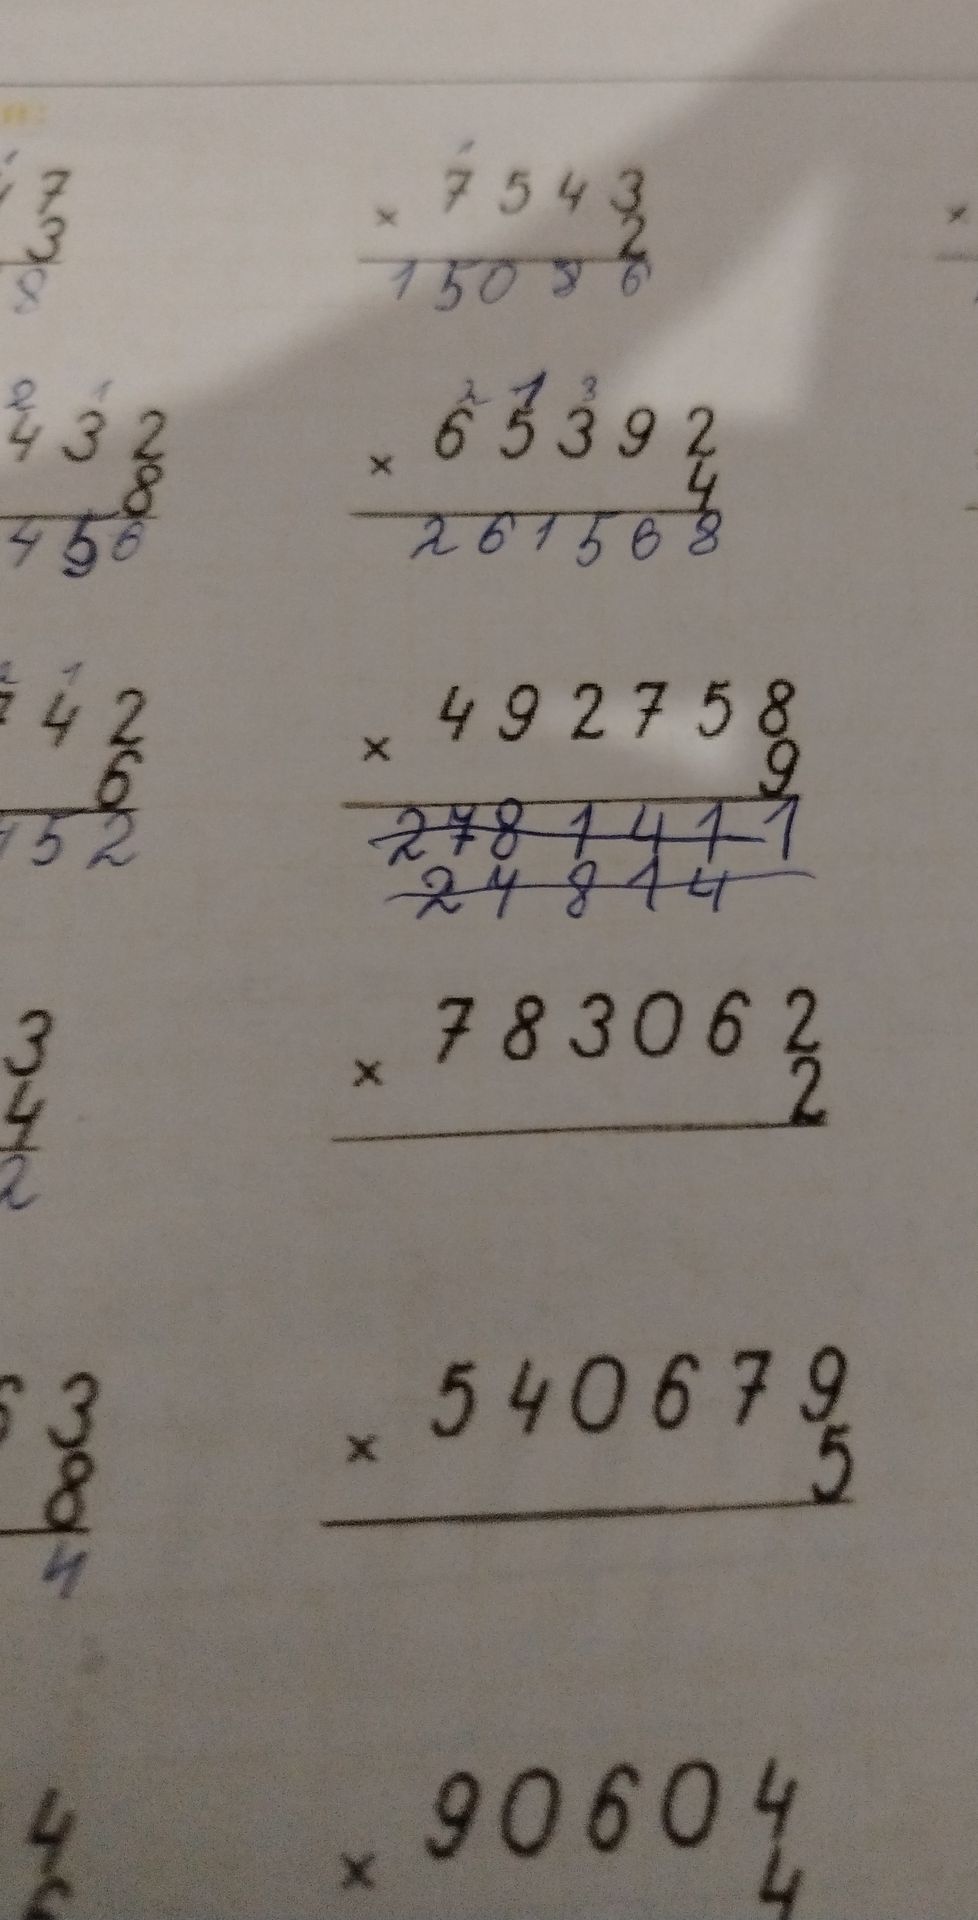 47
3
8
7543
× 2
15086
2 1
432
8
456
2 1 3
65392
× 4
261568
2 1
742
6
152
492758
× 9
2781411
24814
3
4
2
783062
× 2
63
8
4
540679
× 5
4
6
90604
× 4